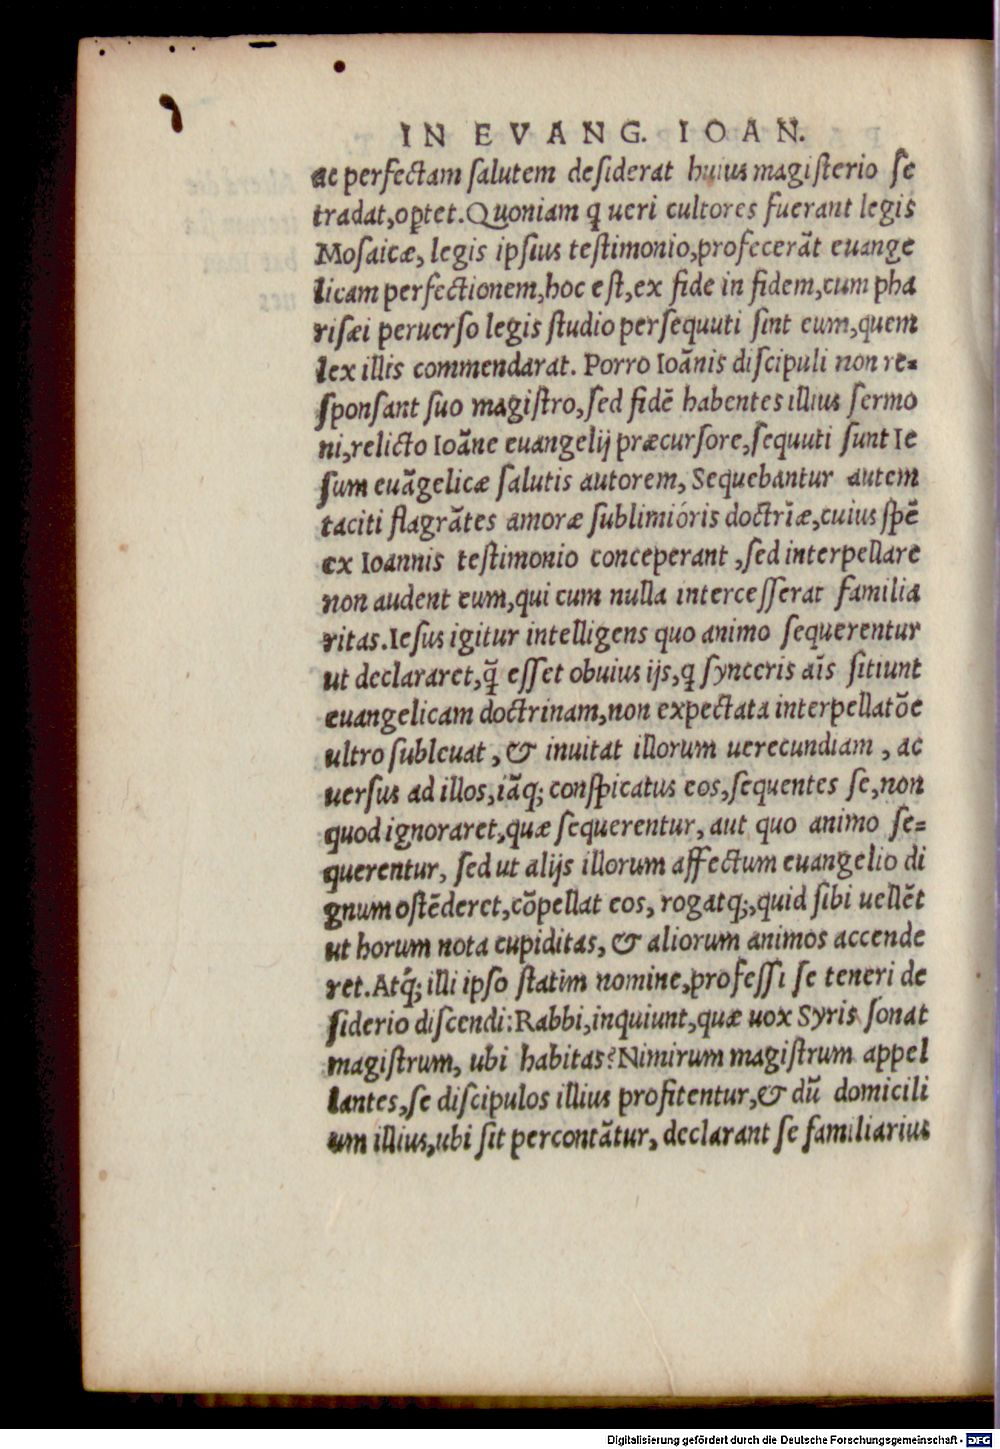 IN EVANG. IOAN.
ac perfectam salutem desiderat huius magisterio se
tradat, optet. Quoniam q ueri cultores fuerant legis
Mosaicæ, legis ipsius testimonio, profecerãt euange
licam perfectionem, hoc est, ex fide in fidem, cum pha
risæi peruerso legis studio persequuti sint eum, quem
lex illis commendarat. Porro Ioãnis discipuli non re=
sponsant suo magistro, sed fidẽ habentes illius sermo
ni, relicto Ioãne euangelij præcursore, sequuti sunt Ie
sum euãgelicæ salutis autorem, Sequebantur autem
taciti flagrãtes amoræ sublimióris doctrĩæ, cuius spẽ
ex Ioannis testimonio conceperant, sed interpellare
non audent eum, qui cum nulla intercesserat familia
ritas. Iesus igitur intelligens quo animo sequerentur
ut declararet, q̃ esset obuius ijs, q synceris aĩs sitiunt
euangelicam doctrinam, non expectata interpellatõe
ultro subleuat, & inuitat illorum uerecundiam, ac
uersus ad illos, iãq; conspicatus eos, sequentes se, non
quod ignoraret, quæ sequerentur, aut quo animo se=
querentur, sed ut alijs illorum affectum euangelio di
gnum ostẽderet, cõpellat eos, rogatq;, quid sibi uellẽt
ut horum nota cupiditas, & aliorum animos accende
ret. Atq́; illi ipso statim nomine, professi se teneri de
siderio discendi: Rabbi, inquiunt, quæ uox Syris sonat
magistrum, ubi habitas? Nimirum magistrum appel
lantes, se discipulos illius profitentur, & dũ domicili
um illius, ubi sit percontãtur, declarant se familiarius
Digitalisierung gefördert durch die Deutsche Forschungsgemeinschaft - DFG